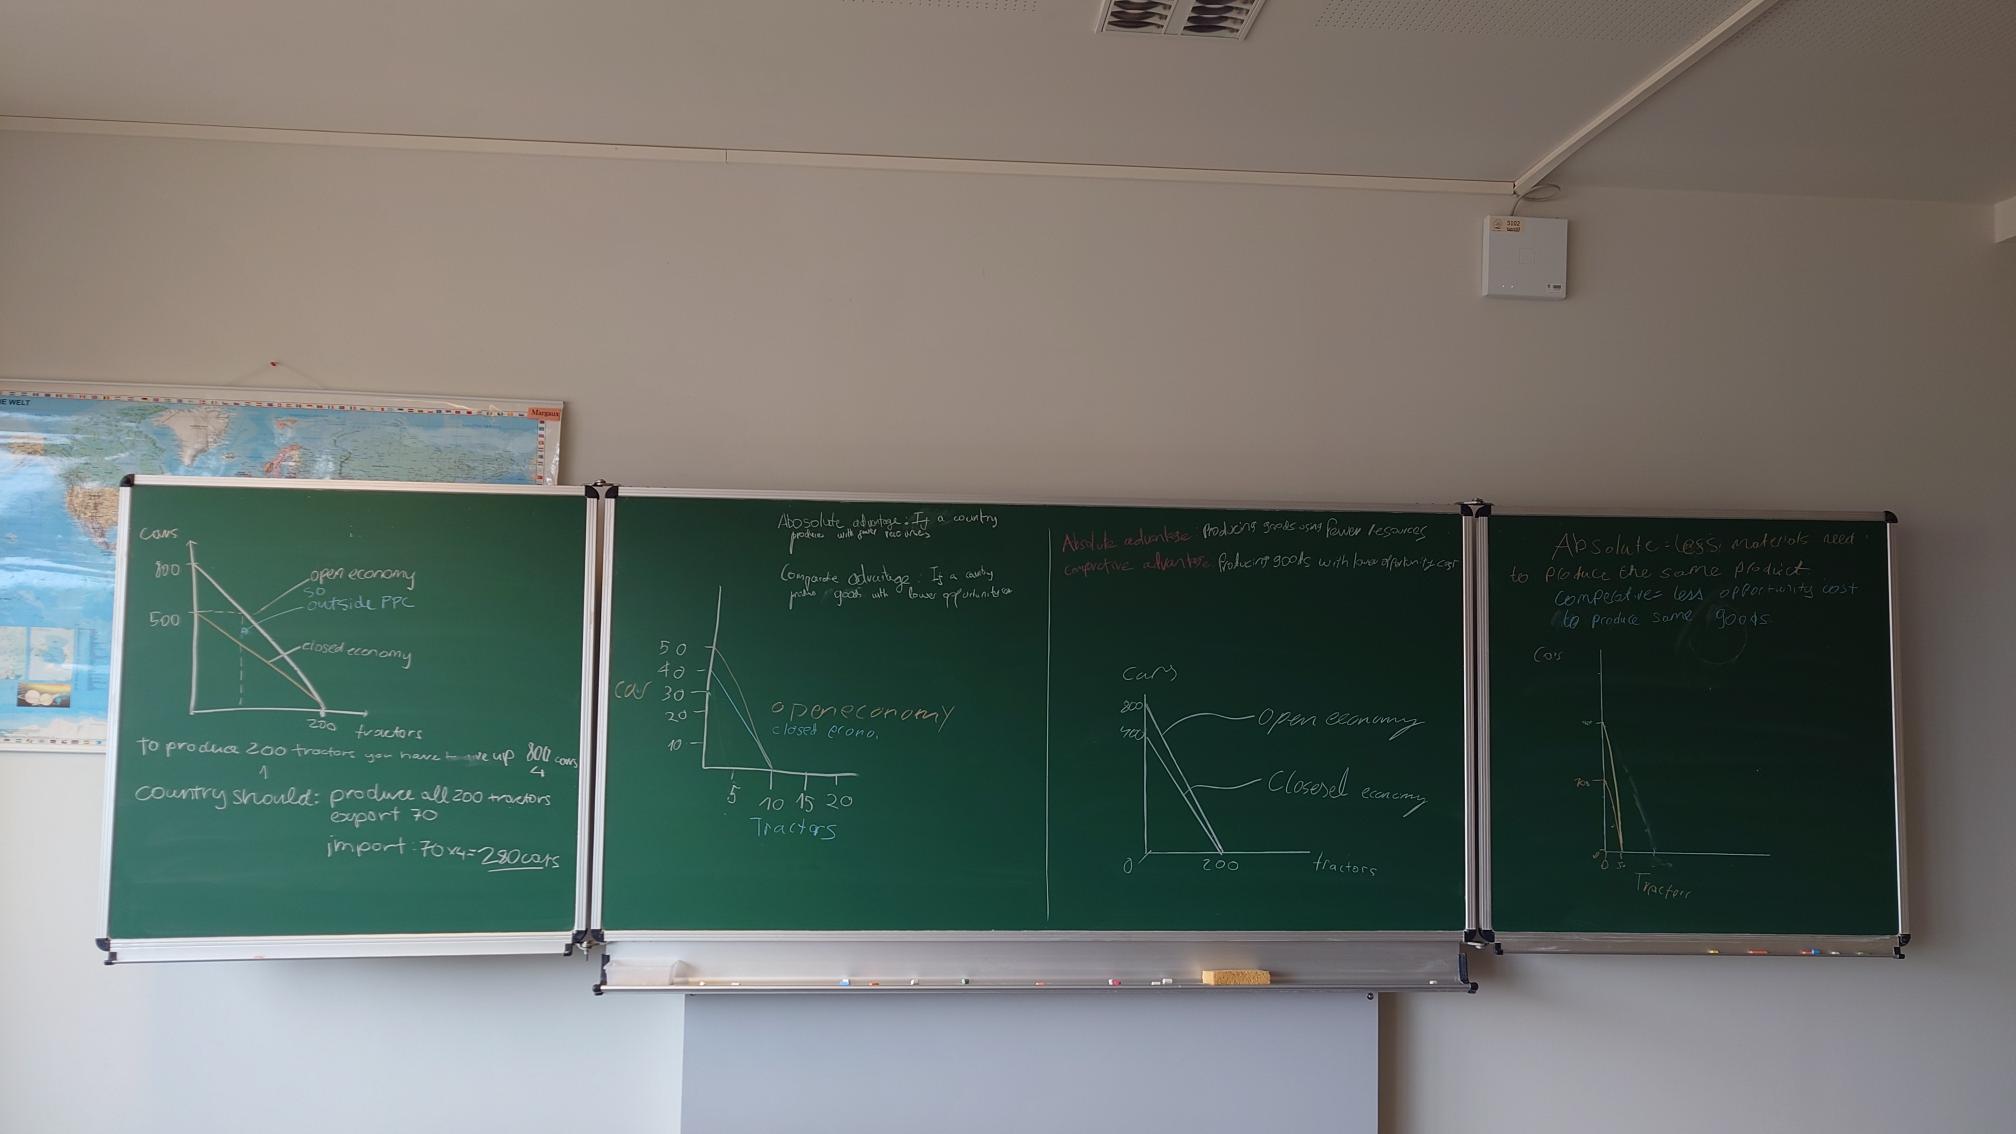 IE WELT
Margaux
5102
cars
800
500
open economy
so
outside PPC
closed economy
200
tractors
to produce 200 tractors you have to give up 800 cars
1
4
country should: produce all 200 tractors
export 70
import: 70x4=280cars
Abosolute advantage: If a country
produces with fewer recourses
Comparate advantage: If a country
goods with lower opportunity
50
40
car
30
20
10
open economy
closed econo.
5
10
15
20
Tractors
Absolute advantage: Producing goods using fewer resources
comparative advantage: Producing goods with lower opportunity cost
Cars
800
Open economy
Closesel economy
0
200
tractors
Absolute = less materials need
to produce the same product
less opportunity cost
to produce same goods
0
Tractors